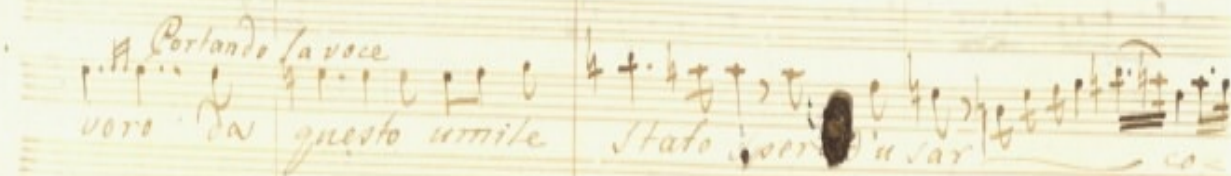 Portando la voce
voro da questo umile Stato sper d'usar co